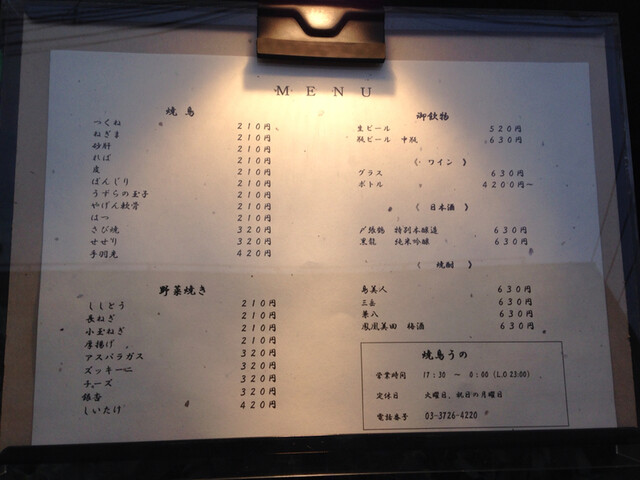 MENU
焼鳥
つくね 210円
ねぎま 210円
砂肝 210円
ればー 210円
皮 210円
ぼんじり 210円
うずらの玉子 210円
やげん軟骨 210円
はつ 210円
さび焼 320円
せせり 320円
手羽先 420円
野菜焼き
ししとう 210円
長ねぎ 210円
小玉ねぎ 210円
厚揚げ 210円
アスパラガス 320円
ズッキーニ 320円
チーズ 320円
銀杏 320円
しいたけ 420円
御飲物
生ビール 520円
瓶ビール 中瓶 630円
〈 ワイン 〉
グラス 630円
ボトル 4200円〜
〈 日本酒 〉
〆張鶴 特別本醸造 630円
黒龍 純米吟醸 630円
〈 焼酎 〉
鳥美人 630円
三岳 630円
兼八 630円
鳳凰美田 梅酒 630円
焼鳥うの
営業時間 17:30 〜 0:00 (L.O 23:00)
定休日 火曜日、祝日の月曜日
電話番号 03-3726-4220